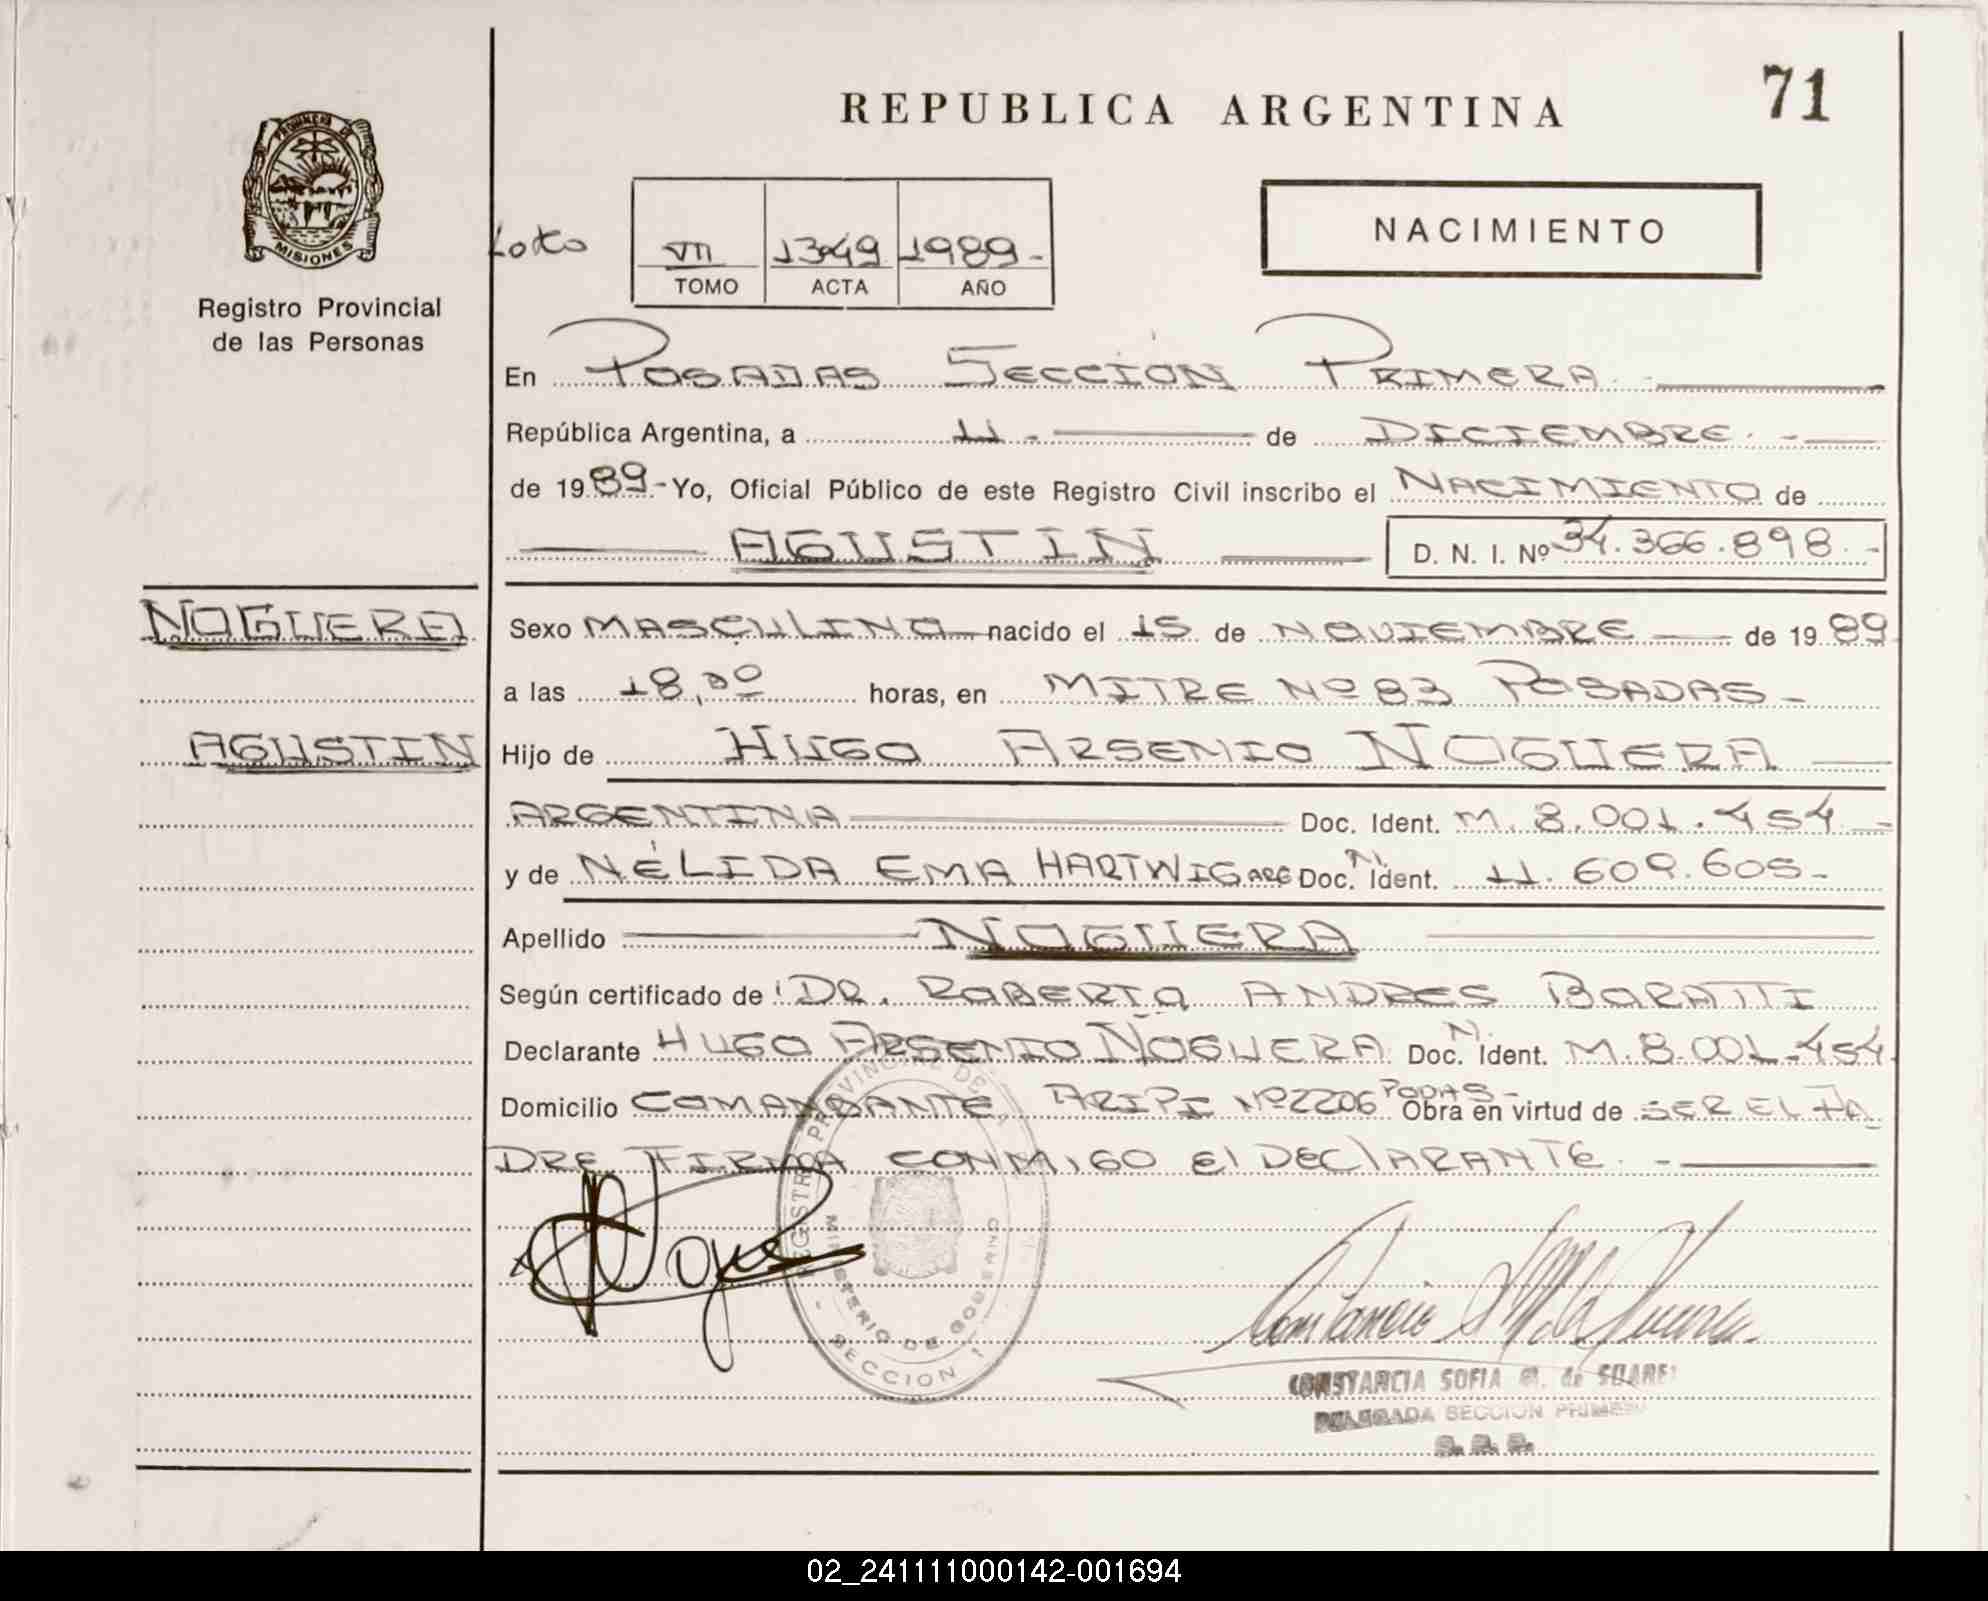 REPUBLICA ARGENTINA
71
PROVINCIA DE
MISIONES
Registro Provincial
de las Personas
VII 1349 1989-
TOMO ACTA AÑO
NACIMIENTO
En POSADAS SECCIÓN PRIMERA
República Argentina, a 11.- de DICIEMBRE.-
de 1989- Yo, Oficial Público de este Registro Civil inscribo el NACIMIENTO de
AGUSTIN D. N. I. Nº 34.366.898.-
NOGUERA
Sexo MASCULINO nacido el 15 de NOVIEMBRE de 1989
a las 18,30 horas, en MITRE Nº 83 POSADAS-
AGUSTIN
Hijo de HUGO ARSENIO NOGUERA
ARGENTINA Doc. Ident. M. 8.001.454-
y de NÉLIDA EMA HARTWIG ARG Doc. N. Ident. 11.609.605-
Apellido NOGUERA
Según certificado de DR. ROBERTO ANDRES BARATTI
Declarante HUGO ARSENIO NOGUERA Doc. N. Ident. M. 8.001.454
Domicilio COMANDANTE Nº2206 PODAS- Obra en virtud de SER EL PA
DRE FIRMA CONMIGO El DEClARANTE.-
REGISTRO PROVINCIAL DE LA
MINISTERIO DE GOBIERNO
SECCION 1
CONSTANCIA SOFIA M. de SUAREZ
DELEGADA SECCION PRIMERA
02_241111000142-001694